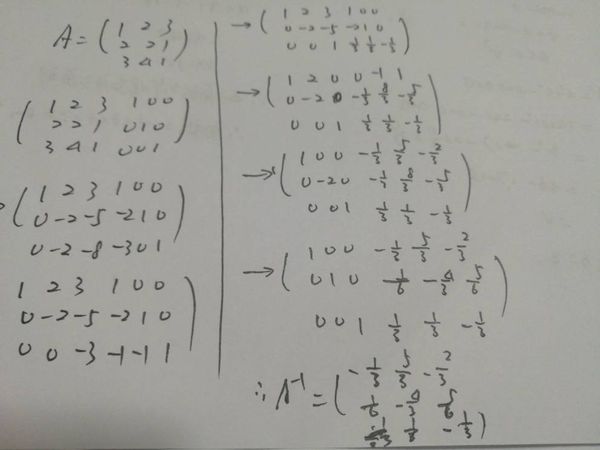 A = ( 1 2 3
2 2 1
3 4 1 )
( 1 2 3 1 0 0
2 2 1 0 1 0
3 4 1 0 0 1 )
→ ( 1 2 3 1 0 0
0 -2 -5 -2 1 0
0 -2 -8 -3 0 1 )
1 2 3 1 0 0
0 -2 -5 -2 1 0
0 0 -3 -1 -1 1 )
→ ( 1 2 3 1 0 0
0 -2 -5 -2 1 0
0 0 1 1/3 1/3 -1/3 )
→ ( 1 2 0 0 -1 1
0 -2 0 -1/3 8/3 -5/3
0 0 1 1/3 1/3 -1/3 )
→ ( 1 0 0 -1/3 5/3 -2/3
0 -2 0 -1/3 8/3 -5/3
0 0 1 1/3 1/3 -1/3 )
→ ( 1 0 0 -1/3 5/3 -2/3
0 1 0 1/6 -4/3 5/6
0 0 1 1/3 1/3 -1/3 )
∴ A⁻¹ = ( -1/3 5/3 -2/3
1/6 -4/3 5/6
1/3 1/3 -1/3 )